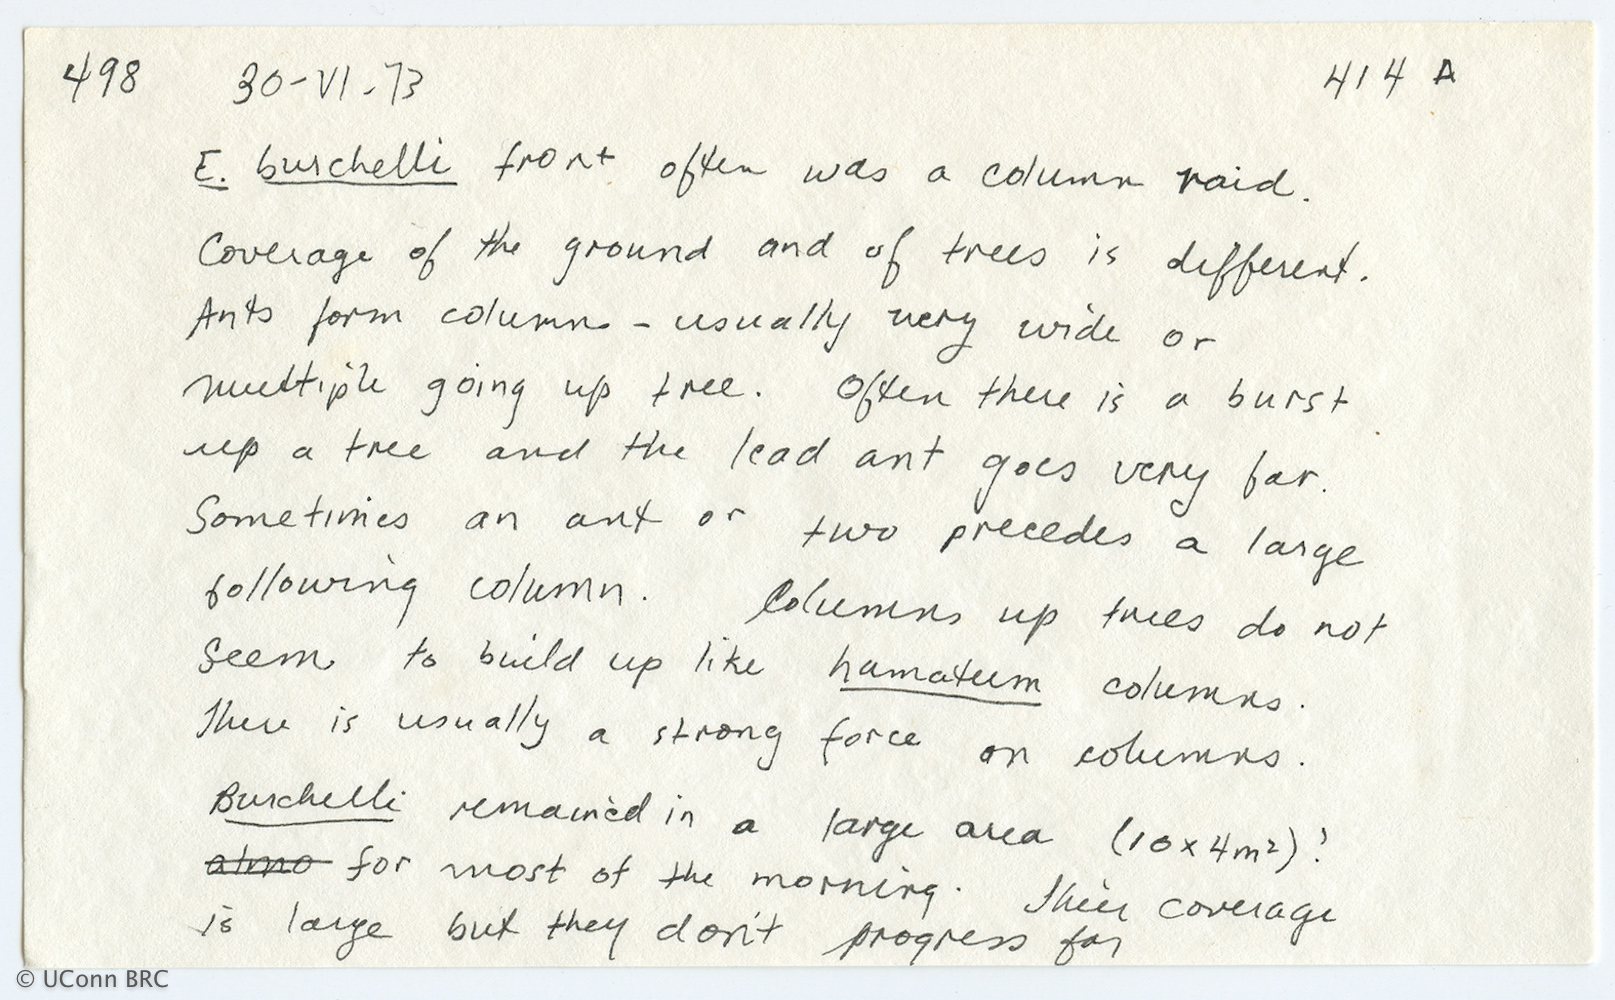 498 30-VI-73 414 A
E. burchelli front often was a column raid.
Coverage of the ground and of trees is different.
Ants form columns - usually very wide or
multiple going up tree. Often there is a burst
up a tree and the lead ant goes very far.
Sometimes an ant or two precedes a large
following column. Columns up trees do not
seem to build up like hamatum columns.
There is usually a strong force on columns.
Burchelli remained in a large area (10x4m²)?
almo for most of the morning. Their coverage
is large but they don't progress far
© UConn BRC